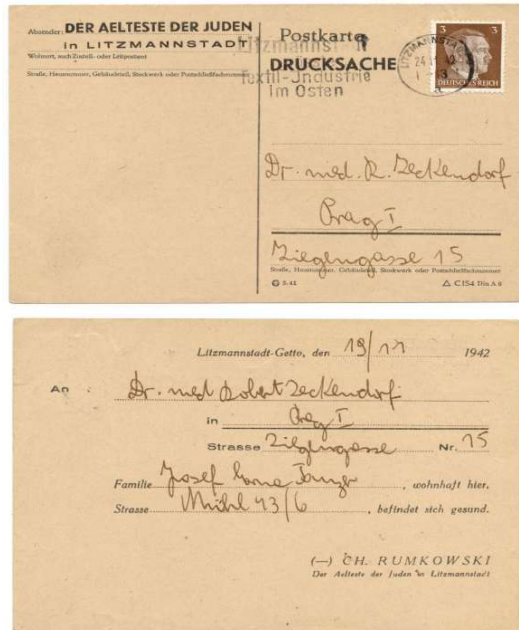 Absender: DER AELTESTE DER JUDEN
in LITZMANNSTADT
Wohnort, auch Zustell- oder Leitpostamt
Straße, Hausnummer, Gebäudeteil, Stockwerk oder Postschließfachnummer
Postkarte
DRUCKSACHE
Litzmannst
Textil-Jndustrie
im Osten
LITZMANNSTADT
24
3 3
DEUTSCHES REICH
Dr. med. R. Zeckendorf
Prag I
Ziegengasse 15
Straße, Hausnummer, Gebäudeteil, Stockwerk oder Postschließfachnummer
C 154 Din A 6
Litzmannstadt-Getto, den 19/11 1942
An Dr. med Robert Zeckendorf
in Prag I
Strasse Ziegengasse Nr. 15
Familie Josef , wohnhaft hier,
Strasse Mühl 43/6 , befindet sich gesund.
(—) CH. RUMKOWSKI
Der Aelteste der Juden in Litzmannstadt